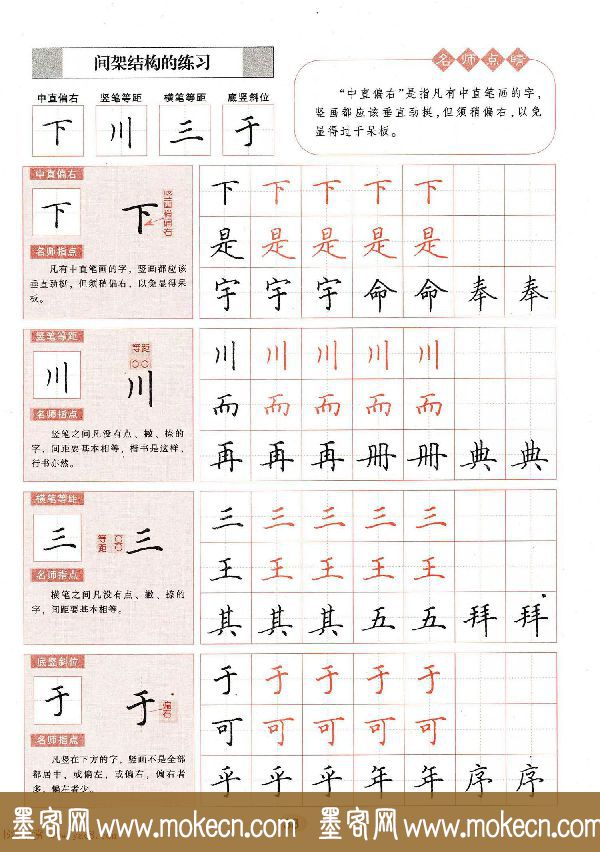 间架结构的练习
名师点睛
“中直偏右”是指凡有中直笔画的字，
竖画都应该垂直劲挺，但须稍偏右，以免
显得过于呆板。
中直偏右 竖笔等距 横笔等距 底竖斜位
下 川 三 于
中直偏右
下 下
竖画稍偏右
名师指点
凡有中直笔画的字，竖画都应该
垂直劲挺，但须稍偏右，以免显得呆
板。
下 下 下 下 下
是 是 是 是 是
宇 宇 宇 命 命 奉 奉
竖笔等距
等距
川 川
名师指点
竖笔之间凡没有点、撇、捺的
字，间距要基本相等，楷书是这样，
行书亦然。
川 川 川 川 川
而 而 而 而 而
再 再 再 册 册 典 典
横笔等距
三 等距 三
名师指点
横笔之间凡没有点、撇、捺的
字，间距要基本相等。
三 三 三 三 三
王 王 王 王 王
其 其 其 五 五 拜 拜
底竖斜位
于 于 偏右
名师指点
凡竖在下方的字，竖画不是全部
都居中，或偏左，或偏右，偏右者
多，偏左者少。
于 于 于 于 于
可 可 可 可 可
乎 乎 乎 年 年 序 序
墨客网 www.mokecn.com 墨客网 www.mokecn.com